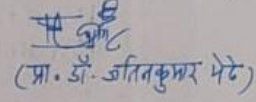 (प्रा. डॉ. जतिनकुमार मेढे)